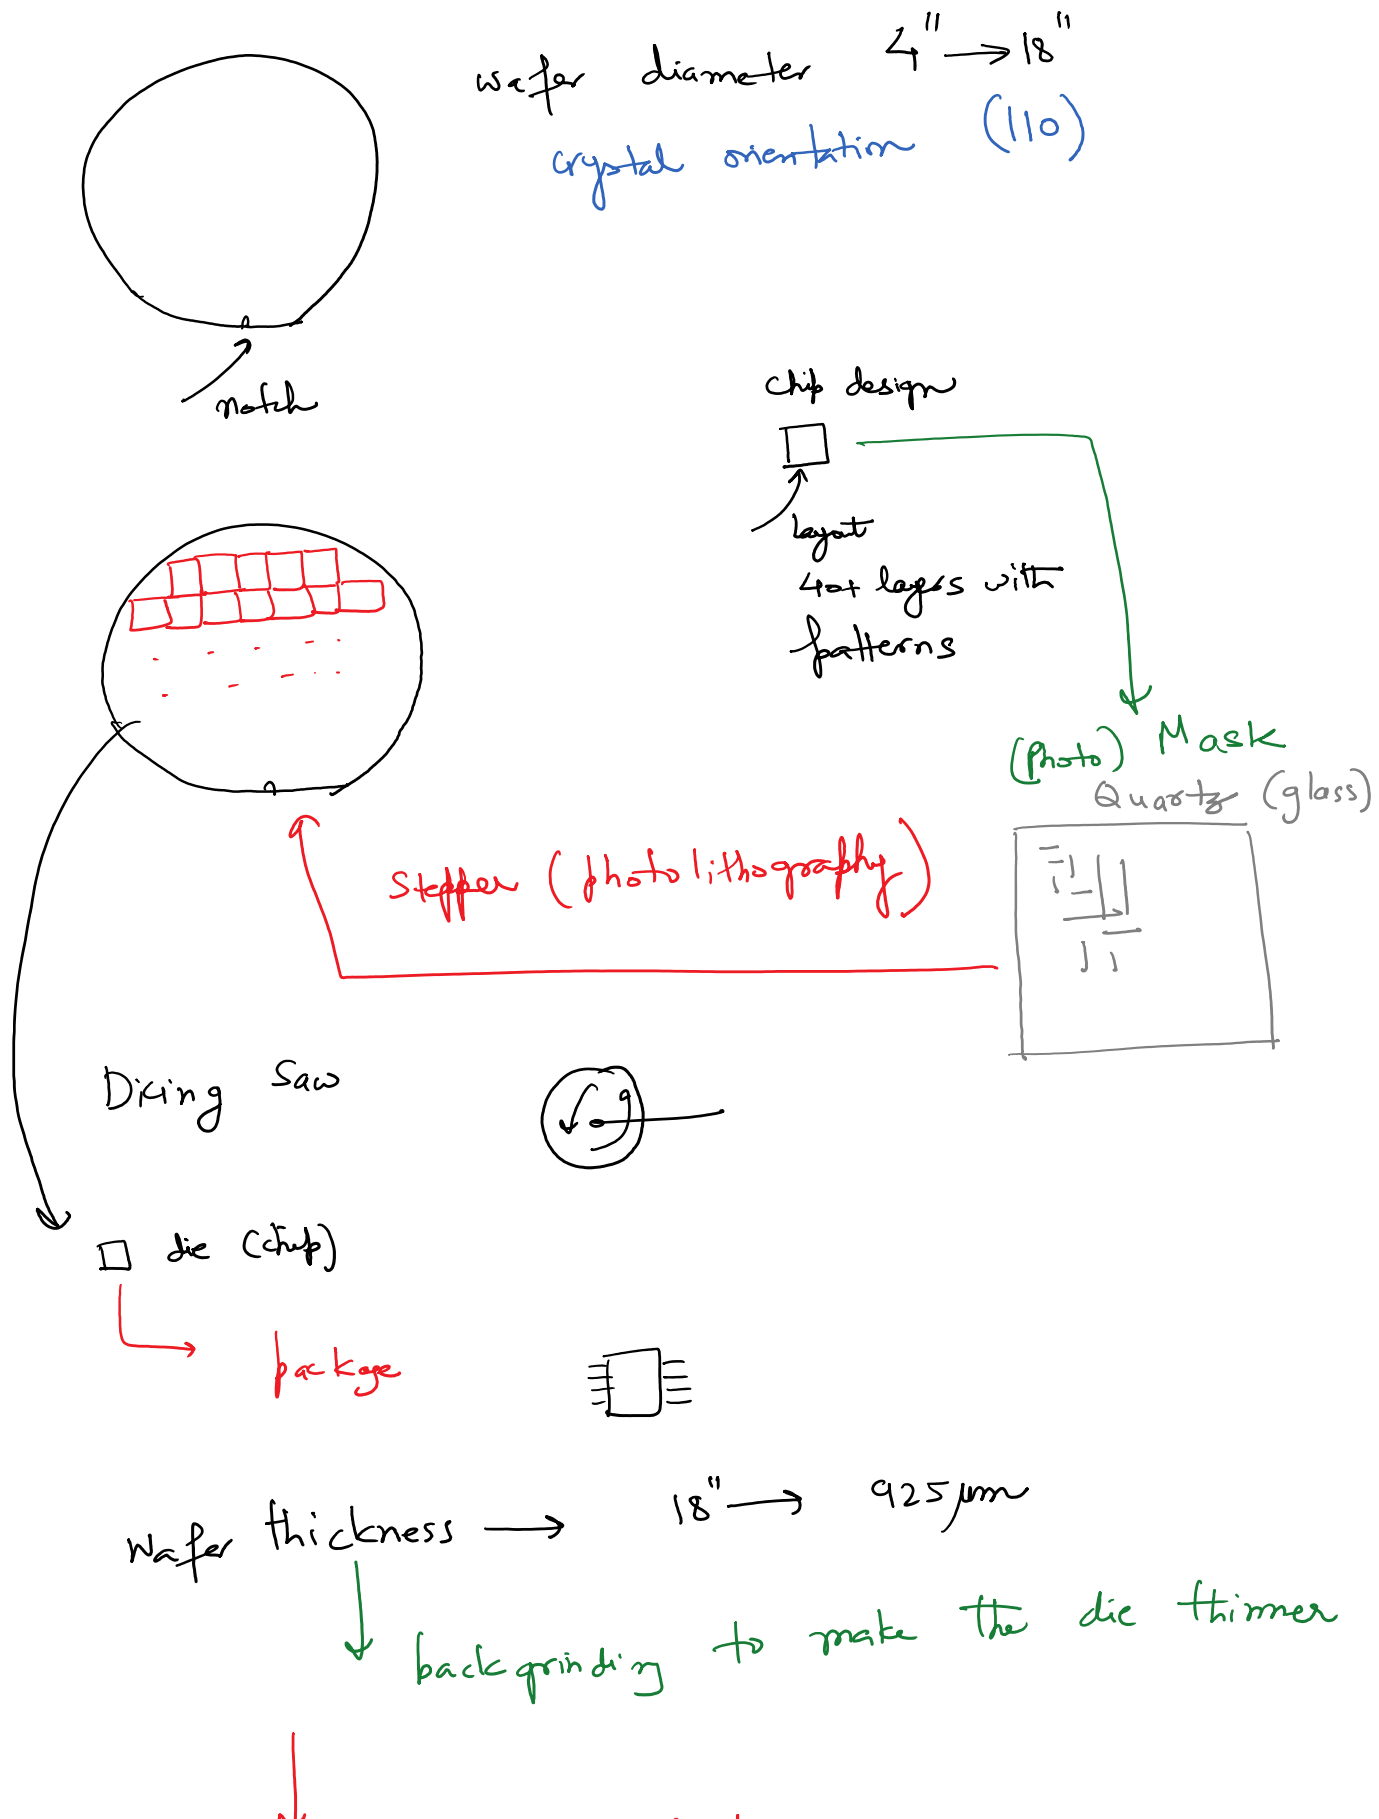 wafer diameter 4" → 18"
crystal orientation (110)
notch
chip design
layout
40+ layers with
patterns
(photo) Mask
Quartz (glass)
Stepper (photolithography)
Dicing Saw
die (chip)
package
Wafer thickness → 18" → 925 μm
backgrinding to make the die thinner